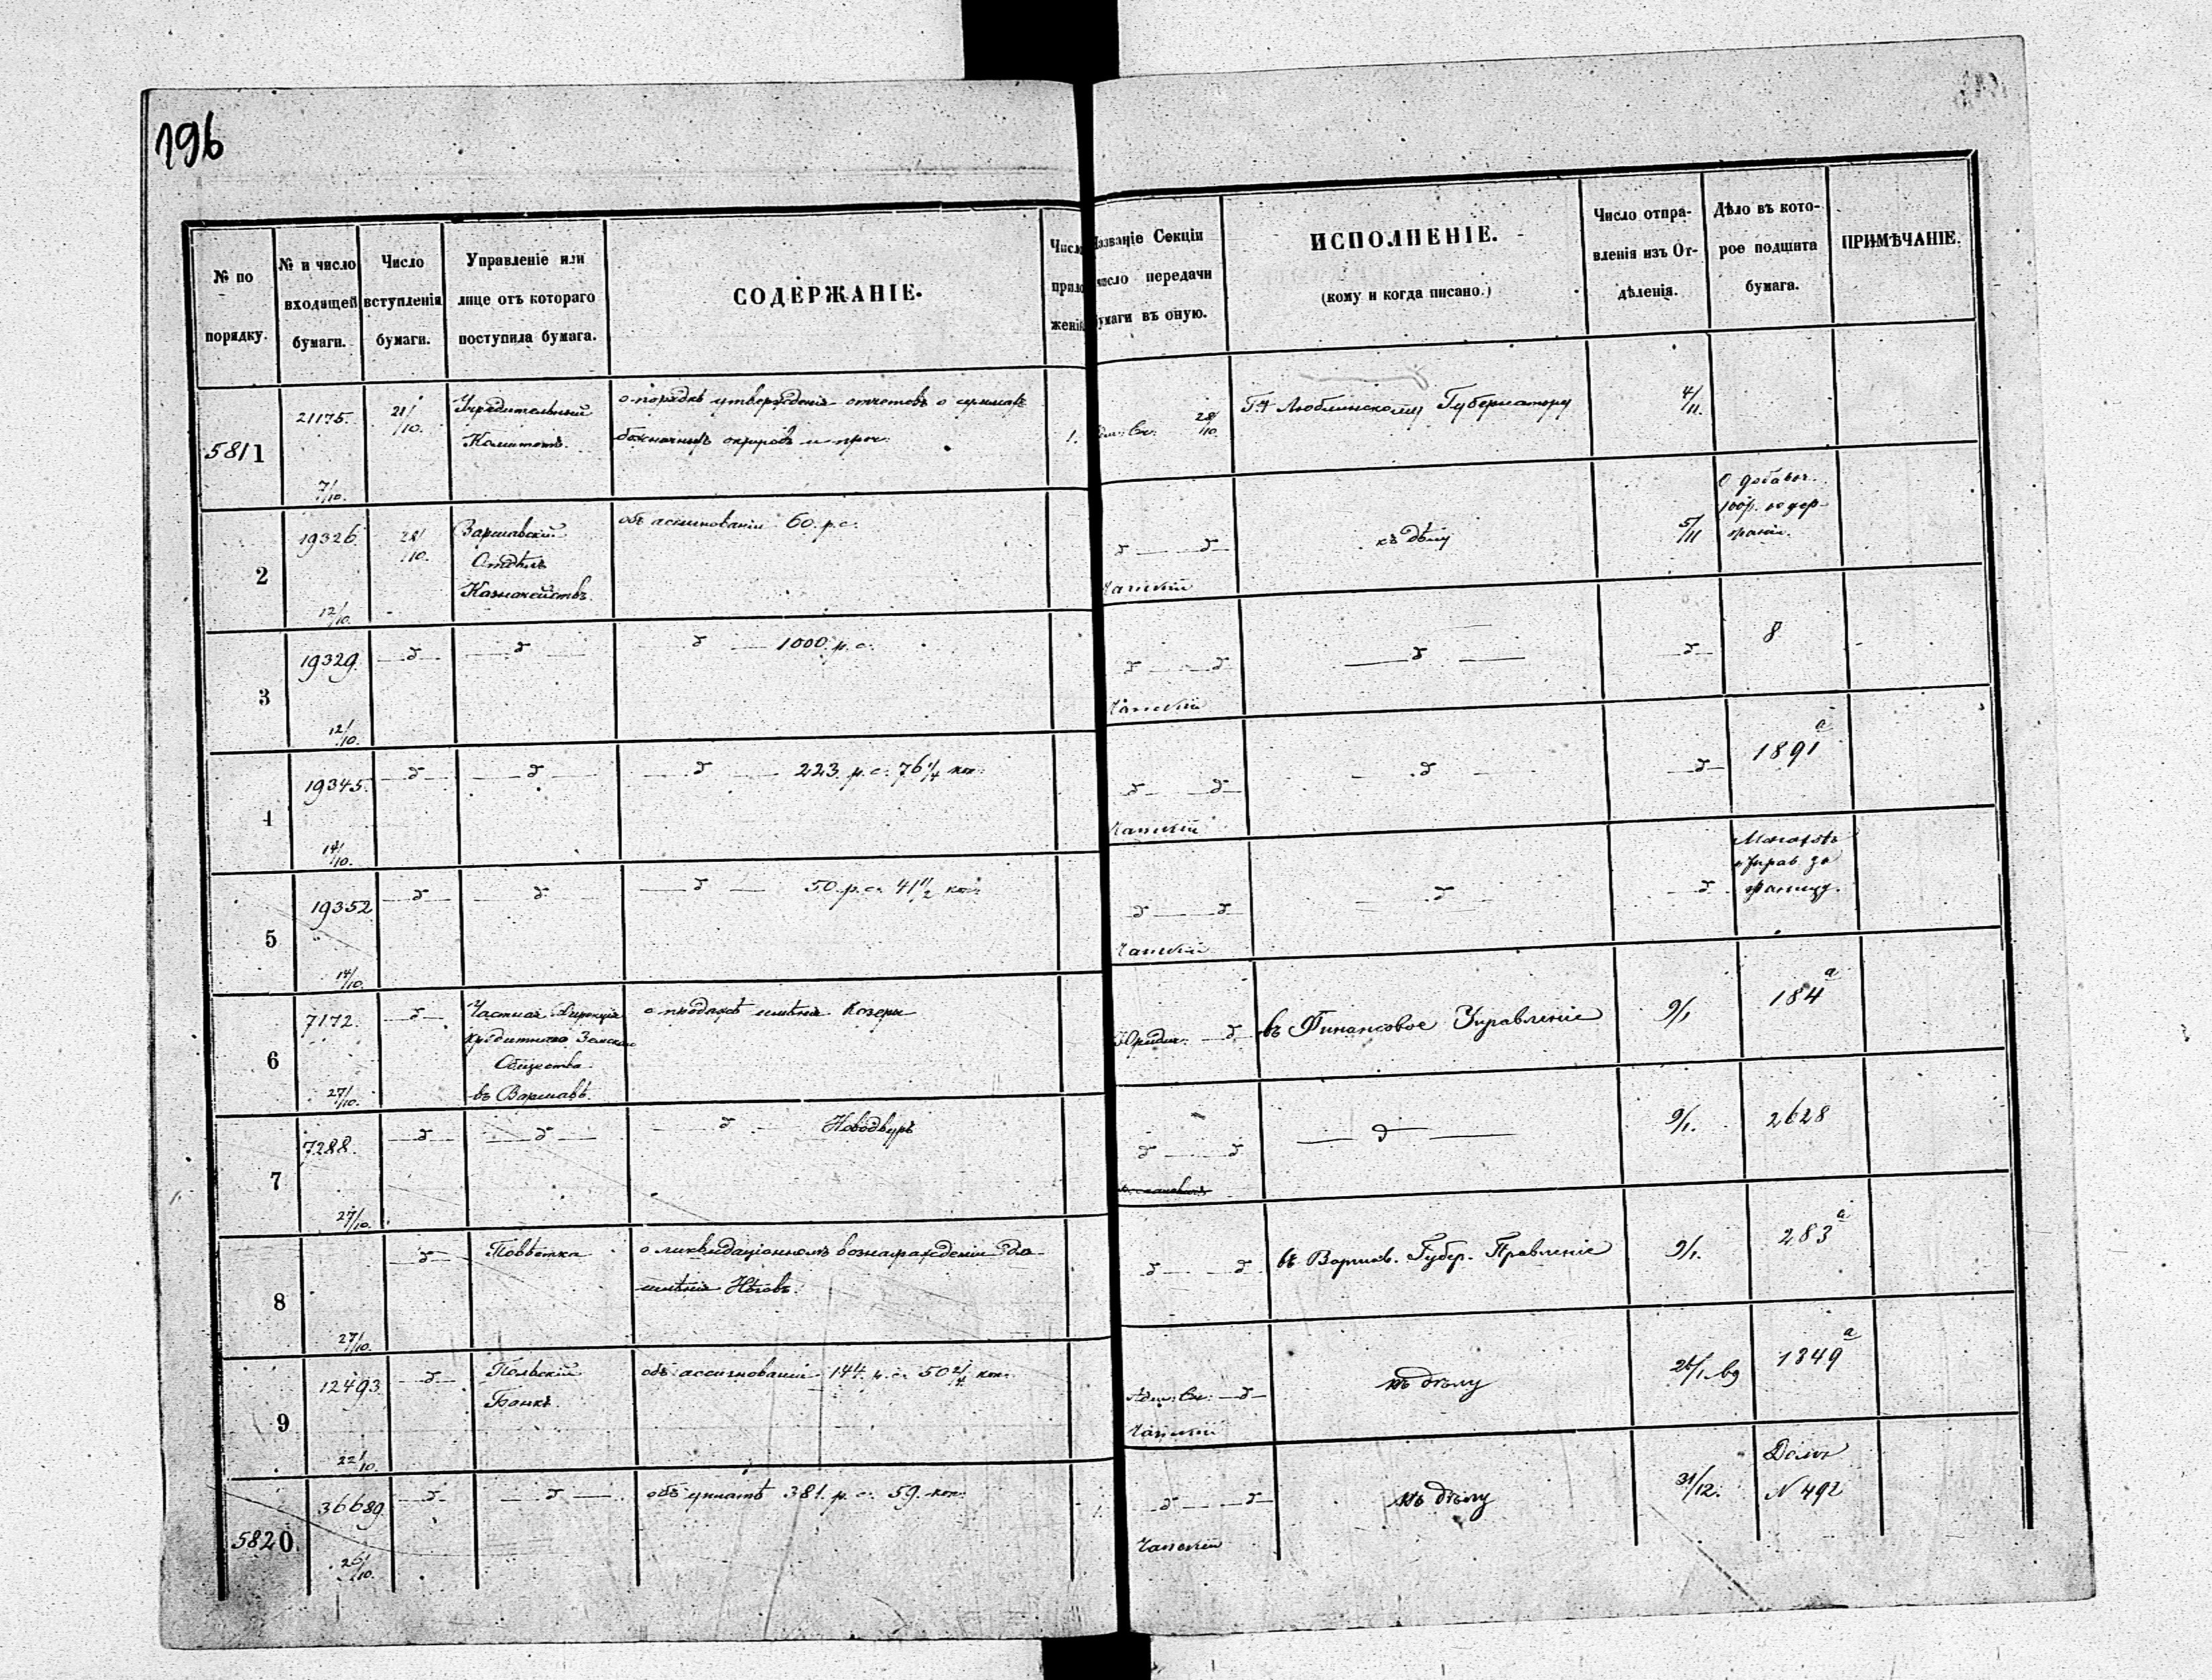 196
№ по порядку.
№ и число входящей бумаги.
Число вступленія бумаги.
Управленіе или лице отъ котораго поступила бумага.
СОДЕРЖАНІЕ.
Число приложеній
Названіе Секціи число передачи бумаги въ оную.
ИСПОЛНЕНІЕ.
(кому и когда писано.)
Число отправленія изъ Отдѣленія.
Дѣло въ которое подшита бумага.
ПРИМѢЧАНІЕ.
5811
21175.
7/10.
21/10.
Учредительный
Комитетъ.
о порядкѣ утвержденія отчетовъ о суммахъ
божничныхъ округовъ и проч:
1.
28/10.
Люблинскому Губернатору
4/11.
2
19326.
12/10.
28/10.
Варшавскій
Отдѣлъ
Казначействъ.
объ ассигнованіи 60. р. с.
къ дѣлу
5/11
О добавоч.
100 р. содер-
жаніи.
3
19329.
12/10.
1000. р. с.
8
4
19345.
14/10.
223. р. с. 76 1/4 коп.
1891 а
5
19352
14/10.
50. р. с. 41 1/2 коп.
границу.
6
7172.
27/10.
Частная Дирекція
Кредитнаго Земскаго
Общества
въ Варшавѣ.
о продажѣ имѣнія Козеры
Юридич.
въ Финансовое Управленіе
9/1
184 а
7
7288.
27/10.
Новодвуръ
9/1.
2628
8
27/10.
Повѣстка
о ликвидаціонномъ вознагражденіи для
имѣнія
въ Варшав. Губер. Правленіе
9/1.
283 а
9
12493
22/10.
Польскій
Банкъ.
объ ассигнованіи 144. р. с. 50 2/4 коп.
Адм: Ск:
къ дѣлу
26/1 69
1849 а
5820.
36689.
26/10.
объ уплатѣ 381. р. с. 59. коп.
1.
къ дѣлу
31/12.
N 492